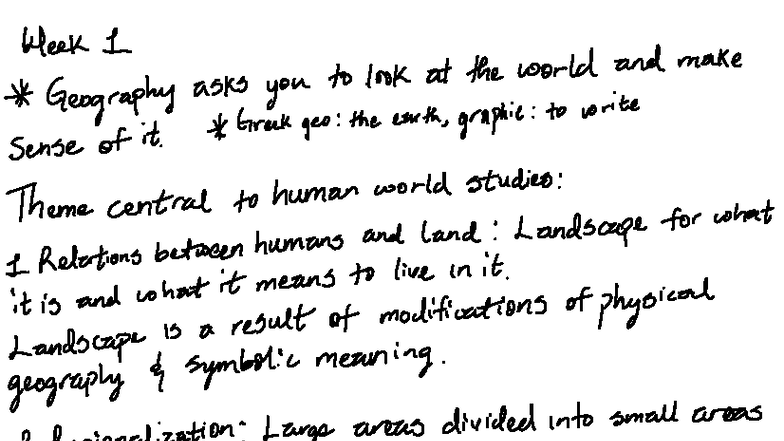 Week 1
* Geography asks you to look at the world and make
Sense of it. * Greek geo: the earth, graphic: to write
Theme central to human world studies:
1 Relations between humans and land: Landscape for what
it is and what it means to live in it.
Landscape is a result of modifications of physical
geography & symbolic meaning.
Regionalization: Large areas divided into small areas